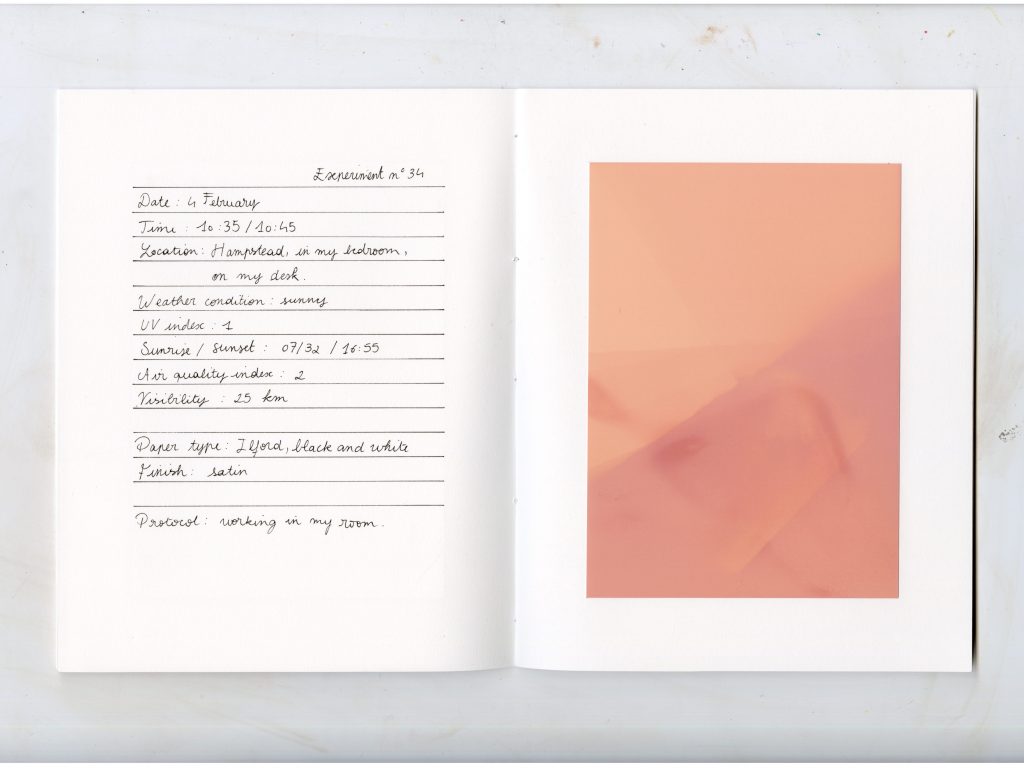 Experiment n° 34
Date : 4 February
Time : 10:35 / 10:45
Location : Hampstead, in my bedroom,
on my desk.
Weather condition : sunny
UV index : 1
Sunrise / Sunset : 07/32 / 16:55
Air quality index : 2
Visibility : 25 km
Paper type : Ilford, black and white
Finish : satin
Protocol : working in my room.